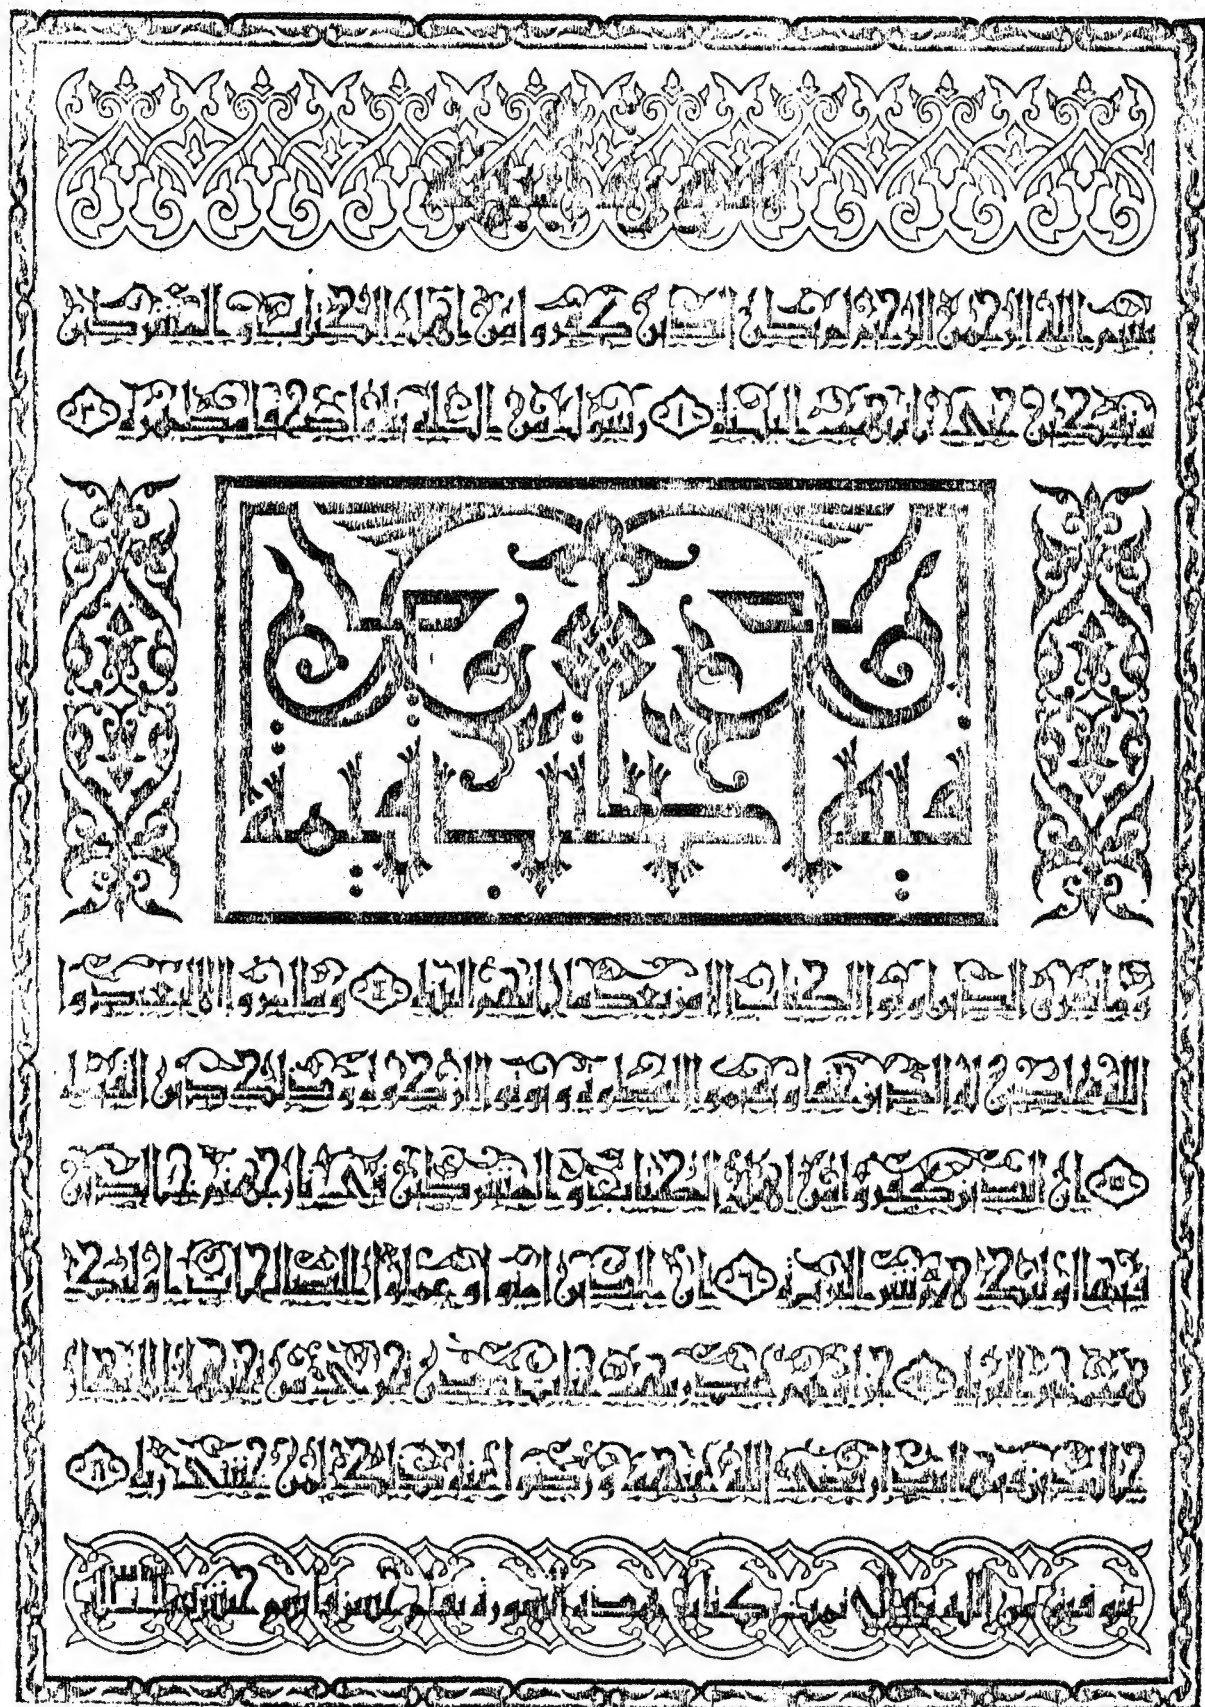 بسم الله الرحمن الرحيم لم يكن الذين كفروا من أهل الكتاب والمشركين
منفكين حتى تأتيهم البينة ١ رسول من الله يتلو صحفا مطهرة ٢
فيها كتب قيمة
وما تفرق الذين أوتوا الكتاب إلا من بعد ما جاءتهم البينة ٤ وما أمروا إلا ليعبدوا
الله مخلصين له الدين حنفاء ويقيموا الصلوة ويؤتوا الزكوة وذلك دين القيمة
٥ إن الذين كفروا من أهل الكتاب والمشركين في نار جهنم
خالدين فيها أولئك هم شر البرية ٦ إن الذين آمنوا وعملوا الصالحات أولئك
هم خير البرية ٧ جزاؤهم عند ربهم جنات عدن تجري من تحتها الأنهار
خالدين فيها أبدا رضي الله عنهم ورضوا عنه ذلك لمن خشي ربه ٨
بتوفيق من الله تعالى تمت كتابة هذه السورة بقلم